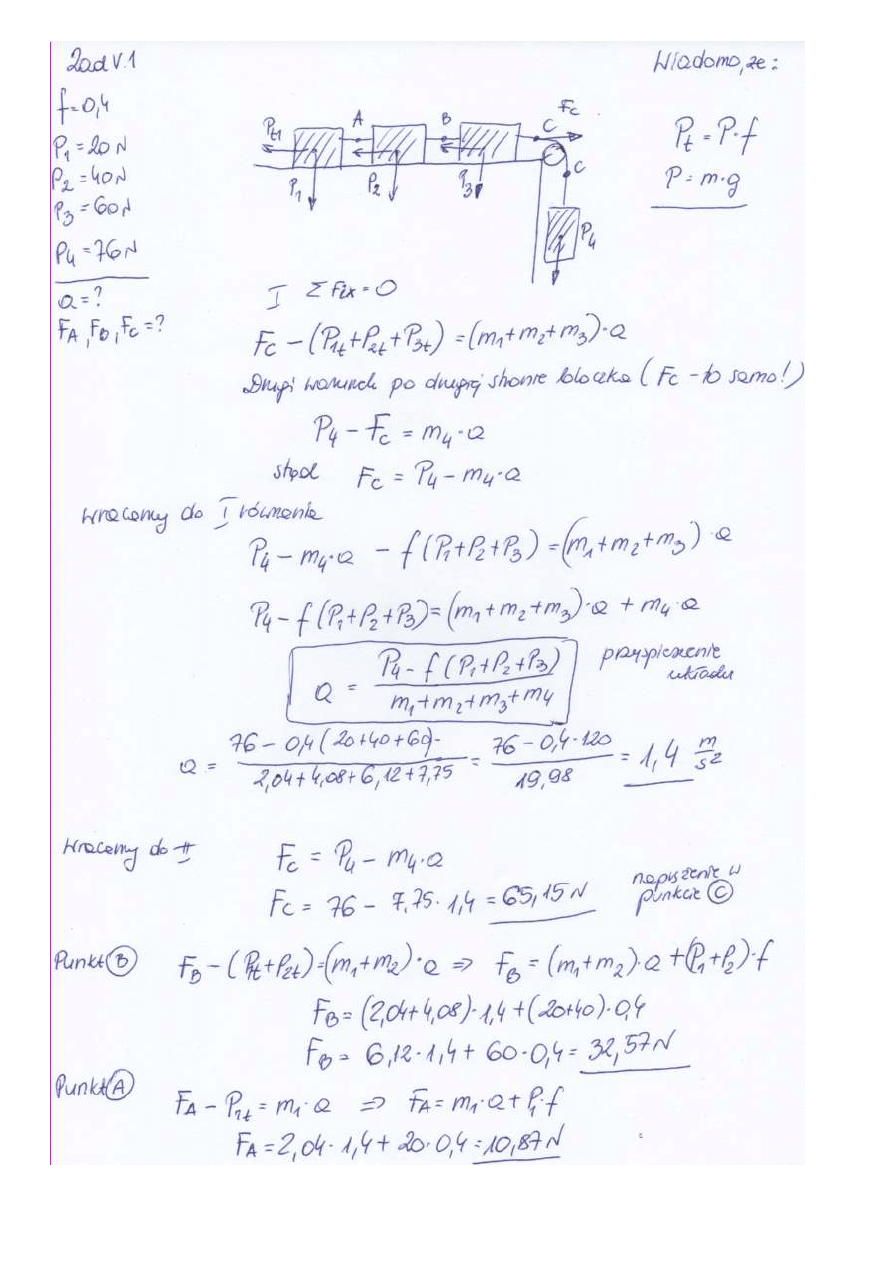 Zad V.1
Wiadomo, że:
f=0,4
P₁=20N
P₂=40N
P₃=60N
P₄=76N
a=?
F_A, F_B, F_C=?
P_t = P·f
P=m·g
P_t1 A B C F_C
P₁ P₂ P₃ C
P₄
I Σ Fix=0
F_C - (P_1t+P_2t+P_3t) = (m₁+m₂+m₃)·a
Drugi warunek po drugiej stronie bloczka (F_C - to samo!)
P₄ - F_C = m₄·a
stąd F_C = P₄ - m₄·a
Wracamy do I równania
P₄ - m₄·a - f(P₁+P₂+P₃) = (m₁+m₂+m₃)·a
P₄ - f(P₁+P₂+P₃) = (m₁+m₂+m₃)·a + m₄·a
a = (P₄ - f(P₁+P₂+P₃)) / (m₁+m₂+m₃+m₄) przyspieszenie układu
a = (76 - 0,4(20+40+60)) / (2,04+4,08+6,12+7,75) = (76 - 0,4·120) / 19,98 = 1,4 m/s²
Wracamy do II F_C = P₄ - m₄·a
F_C = 76 - 7,75·1,4 = 65,15N napięcie w punkcie C
Punkt B F_B - (P_1t+P_2t) = (m₁+m₂)·a => F_B = (m₁+m₂)·a + (P₁+P₂)·f
F_B = (2,04+4,08)·1,4 + (20+40)·0,4
F_B = 6,12·1,4 + 60·0,4 = 32,57N
Punkt A F_A - P_1t = m₁·a => F_A = m₁·a + P₁·f
F_A = 2,04·1,4 + 20·0,4 = 10,87N